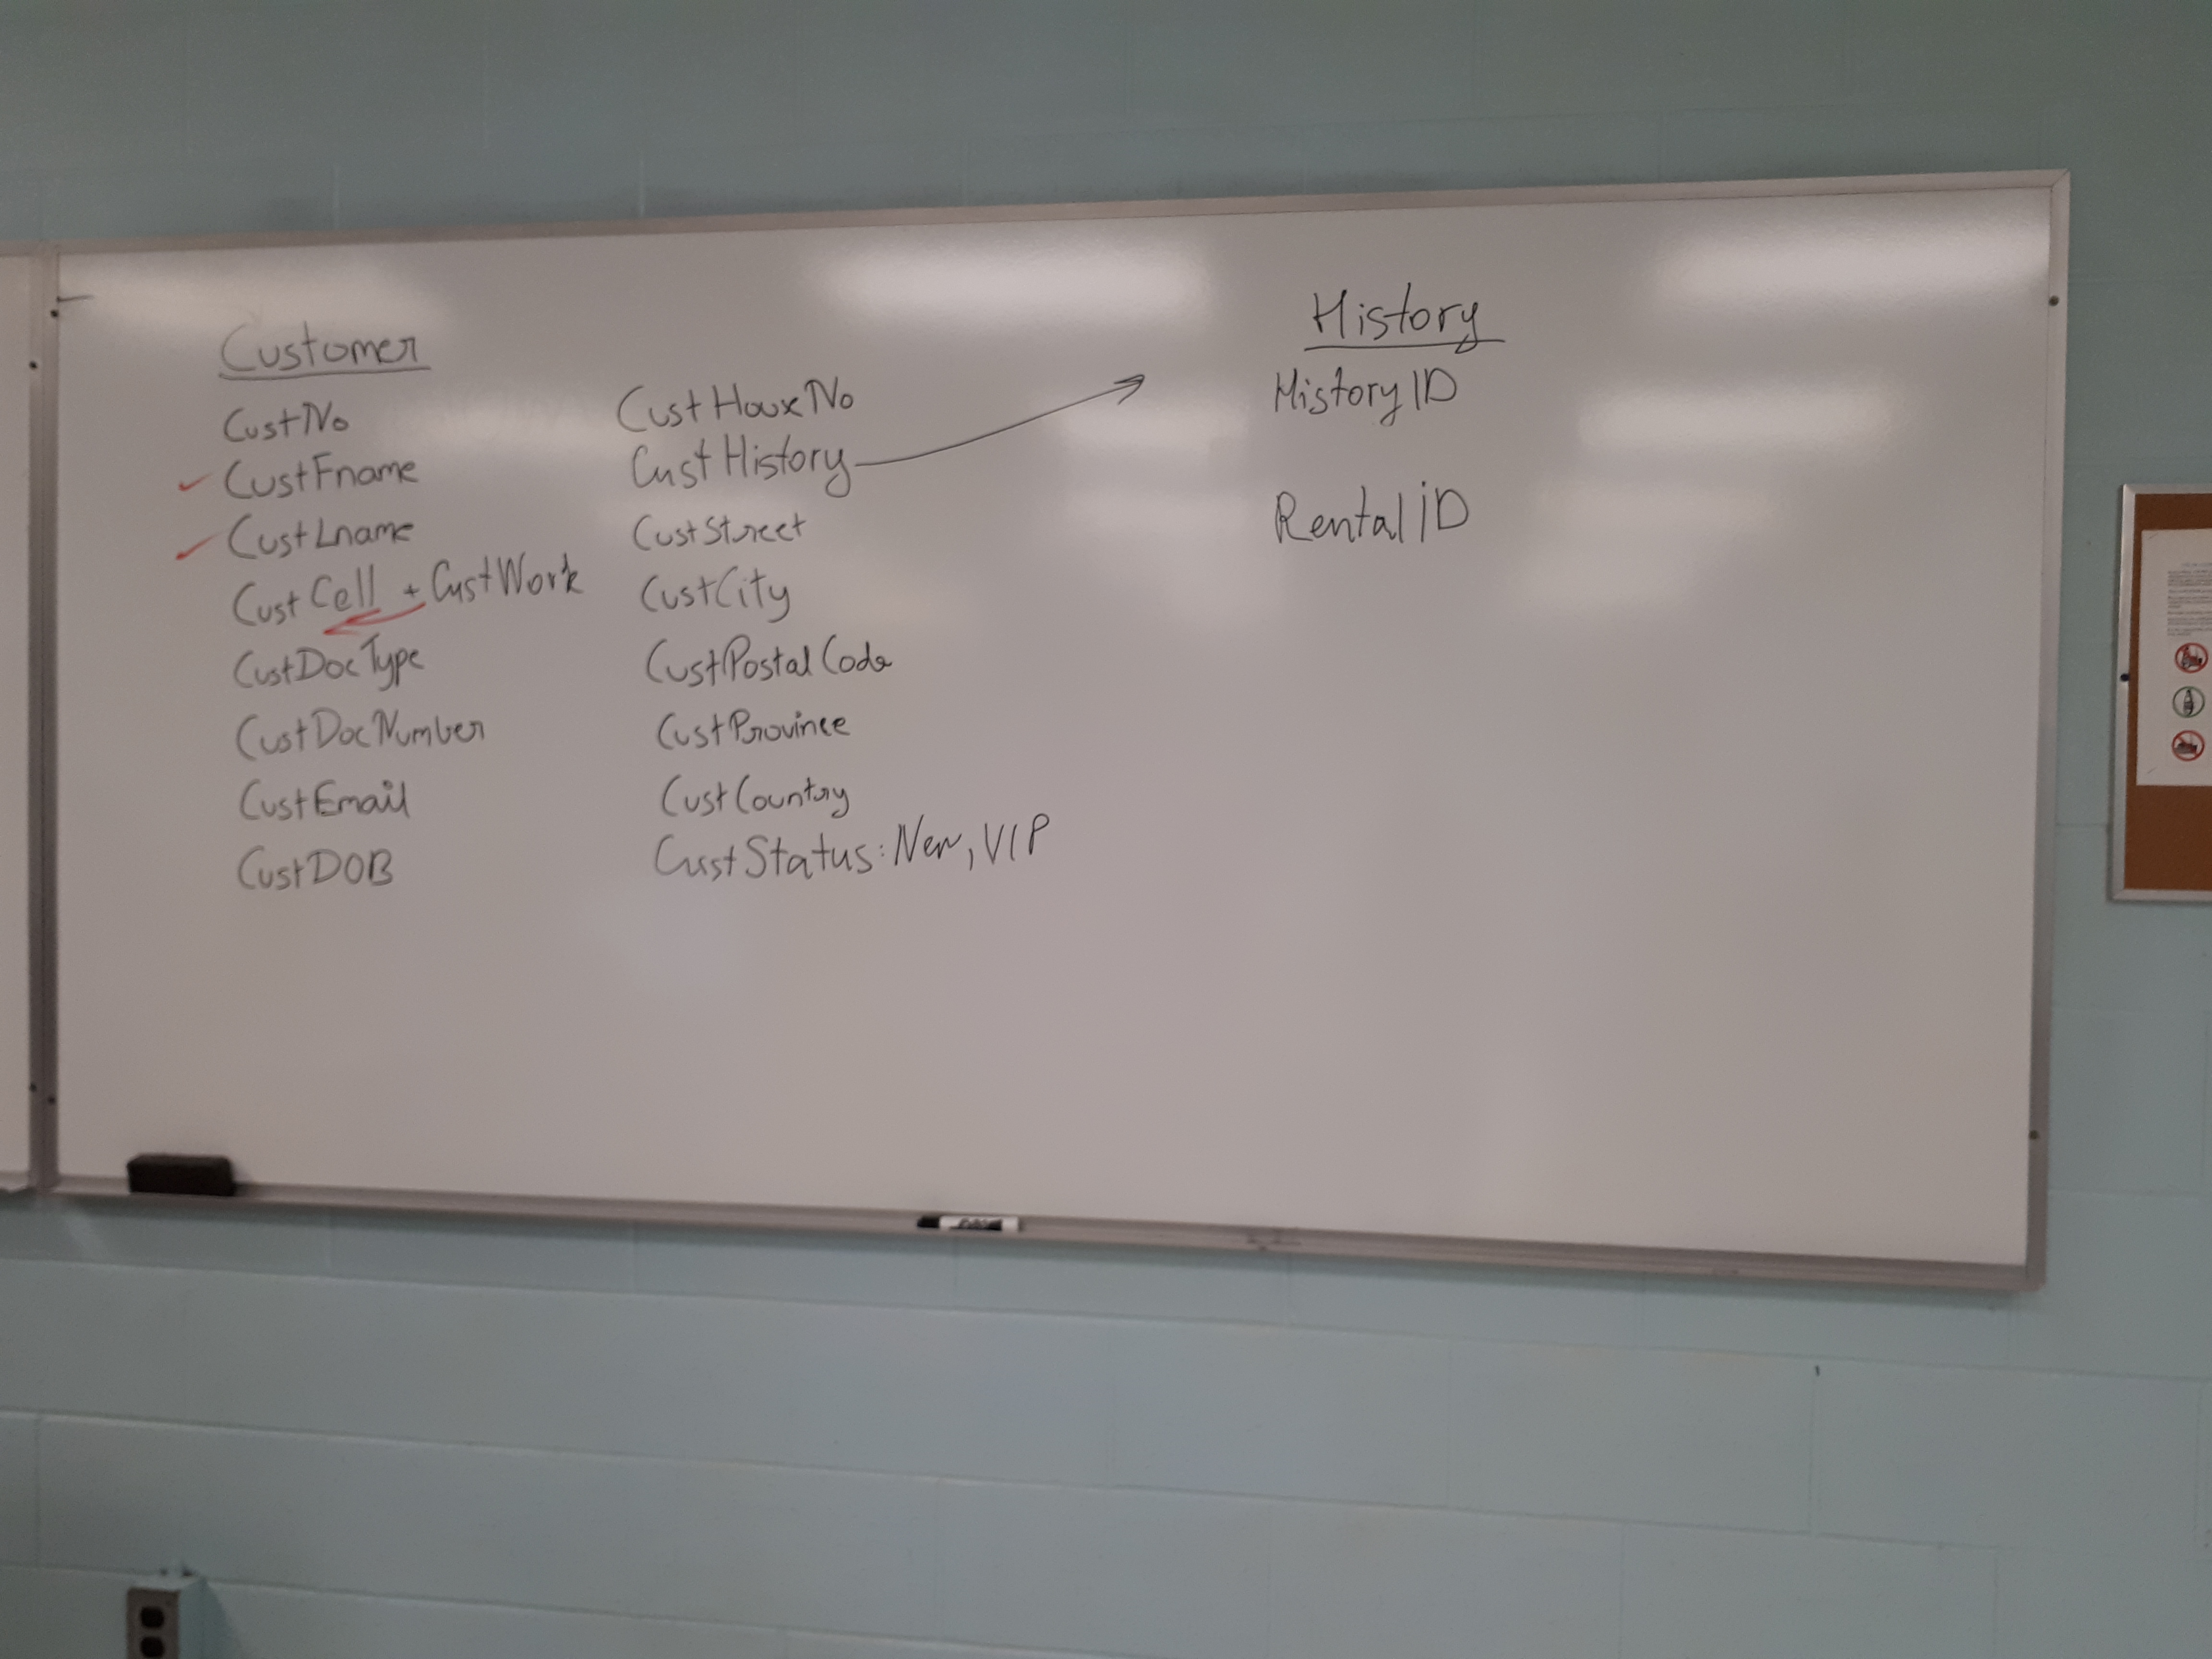 Customer
CustNo
CustFname
CustLname
CustCell + CustWork
CustDocType
CustDocNumber
CustEmail
CustDOB
CustHouseNo
CustHistory
CustStreet
CustCity
CustPostalCode
CustProvince
CustCountry
CustStatus: New, VIP
History
HistoryID
RentaliD